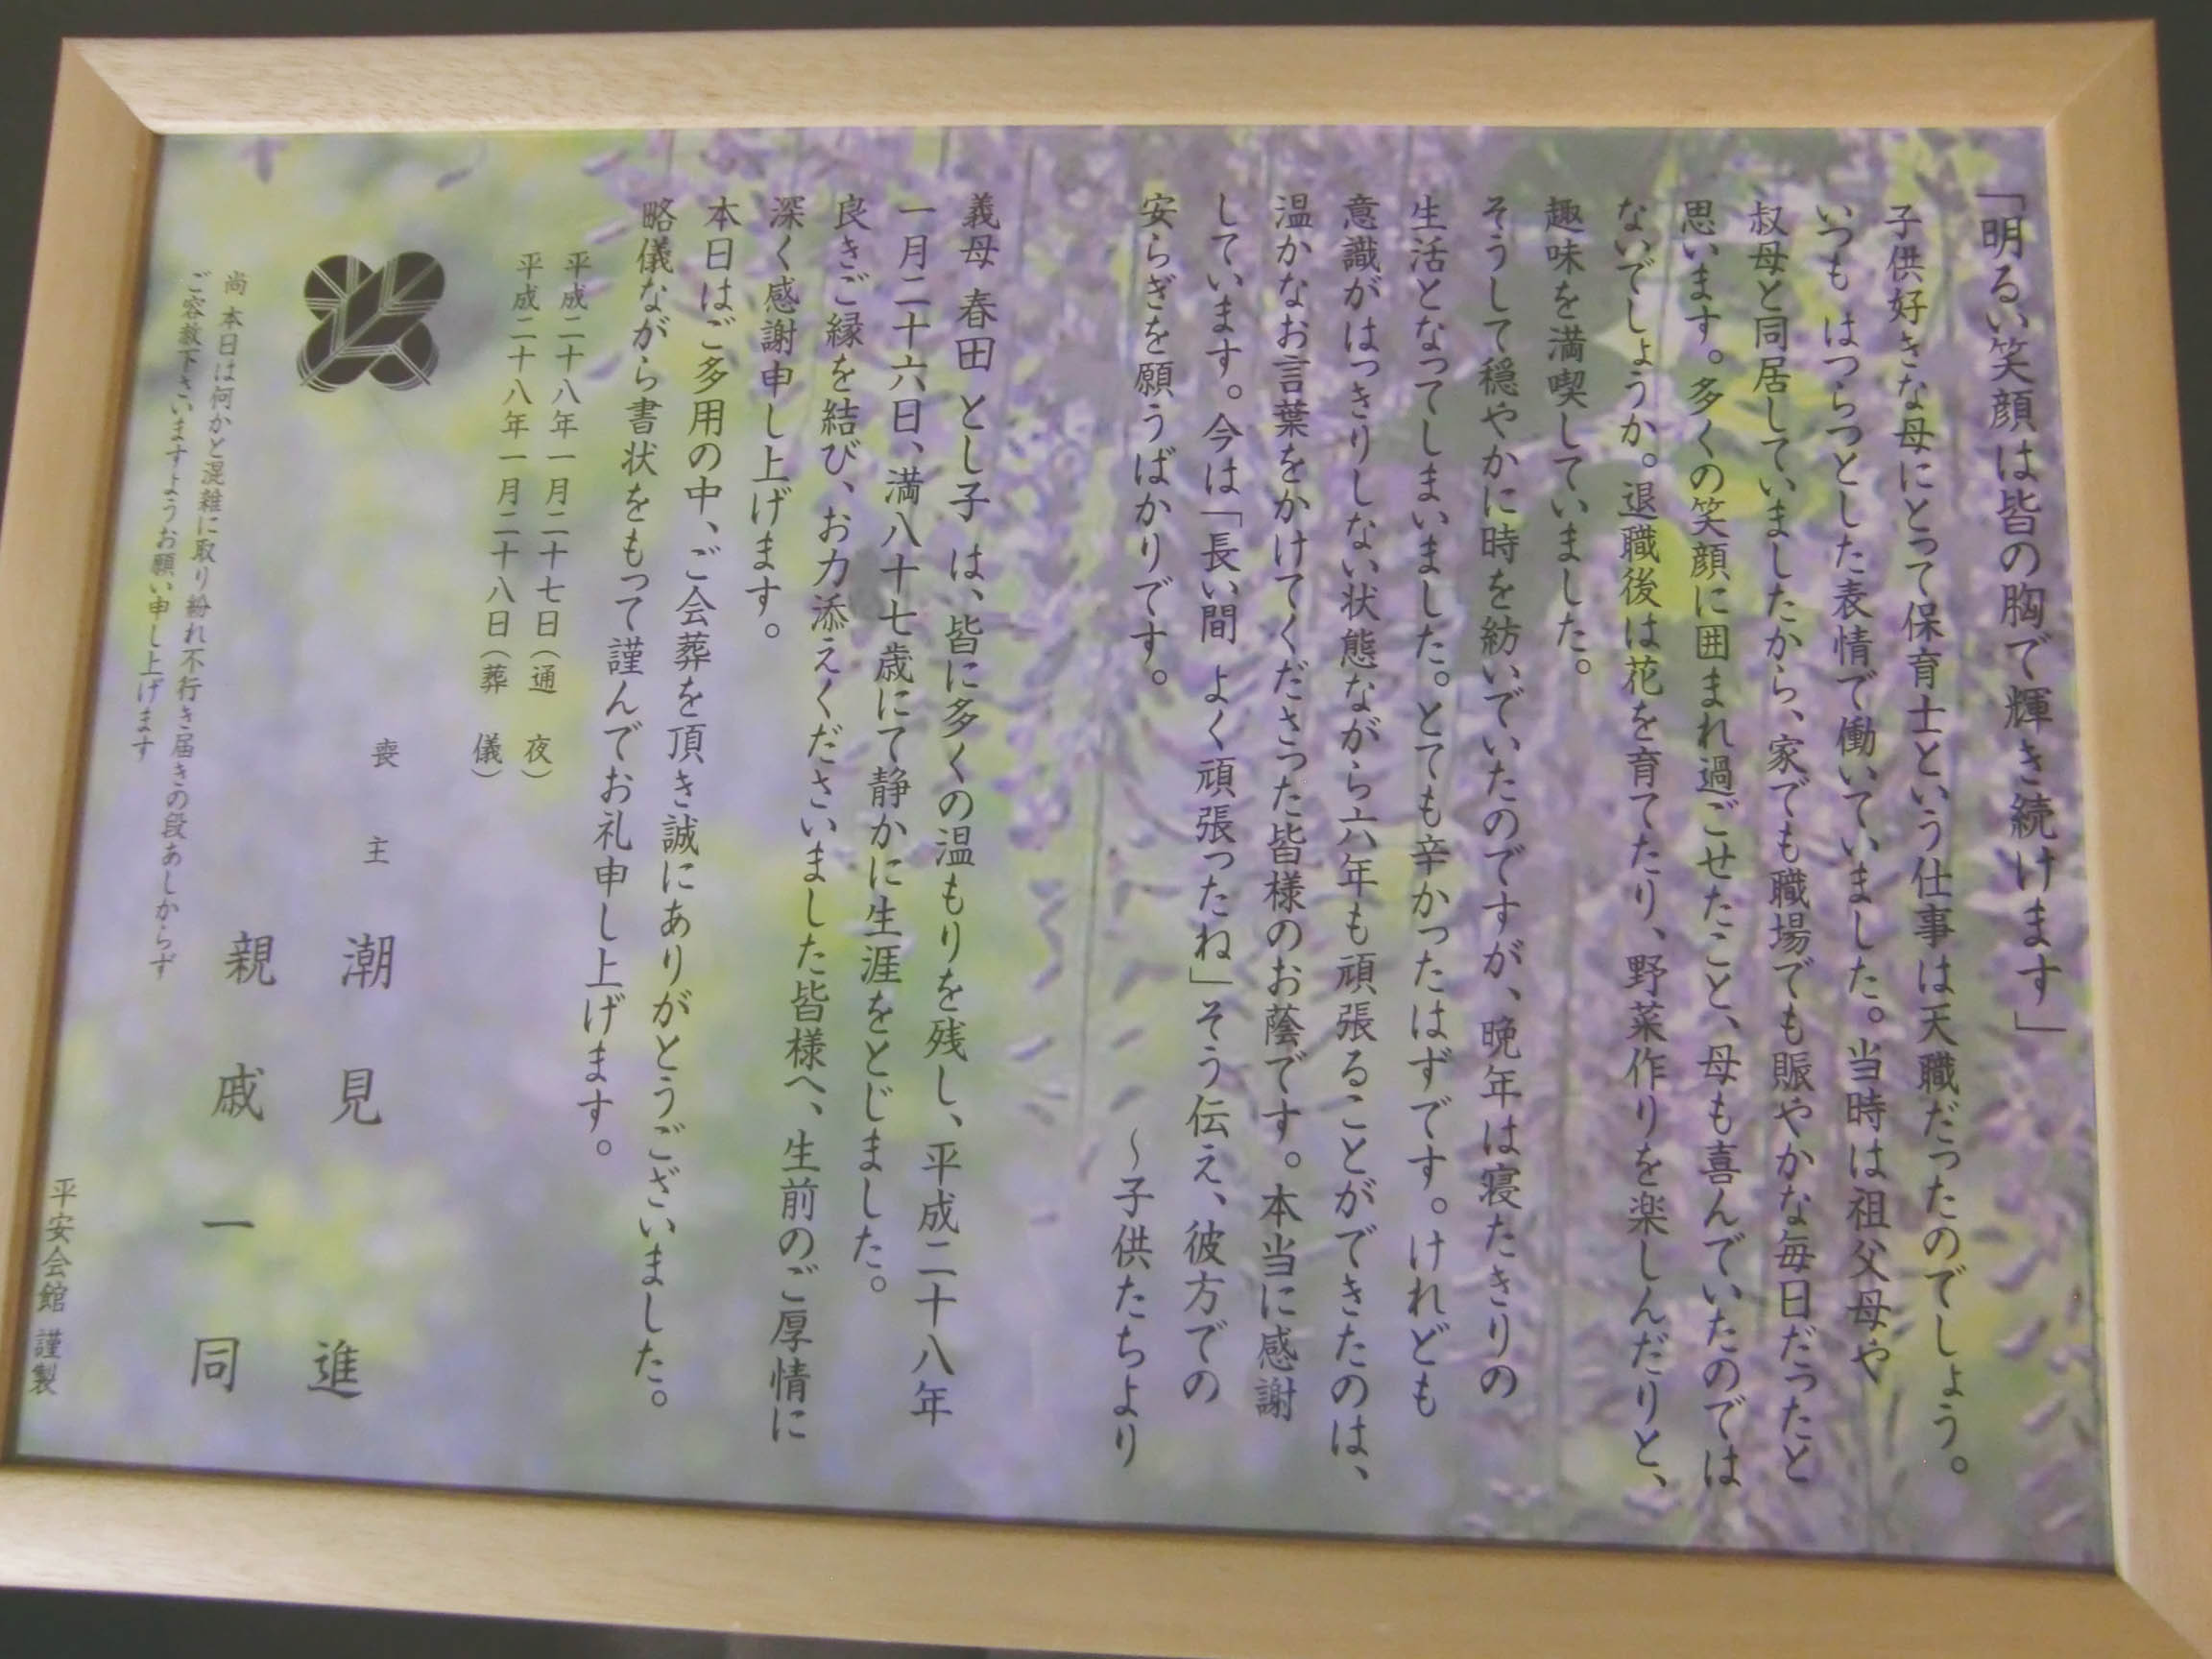 「明るい笑顔は皆の胸で輝き続けます」
子供好きな母にとって保育士という仕事は天職だったのでしょう。
いつも はつらつとした表情で働いていました。当時は祖父母や
叔母と同居していましたから、家でも職場でも賑やかな毎日だったと
思います。多くの笑顔に囲まれ過ごせたこと、母も喜んでいたのでは
ないでしょうか。退職後は花を育てたり、野菜作りを楽しんだりと、
趣味を満喫していました。
そうして穏やかに時を紡いでいたのですが、晩年は寝たきりの
生活となってしまいました。とても辛かったはずです。けれども
意識がはっきりしない状態ながら六年も頑張ることができたのは、
温かなお言葉をかけてくださった皆様のお蔭です。本当に感謝
しています。今は「長い間 よく頑張ったね」そう伝え、彼方での
安らぎを願うばかりです。
～子供たちより
義母 春田 とし子 は、皆に多くの温もりを残し、平成二十八年
一月二十六日、満八十七歳にて静かに生涯をとじました。
良きご縁を結び、お力添えくださいました皆様へ、生前のご厚情に
深く感謝申し上げます。
本日はご多用の中、ご会葬を頂き誠にありがとうございました。
略儀ながら書状をもって謹んでお礼申し上げます。
平成二十八年一月二十七日（通 夜）
平成二十八年一月二十八日（葬 儀）
喪 主 潮 見 進
親 戚 一 同
尚 本日は何かと混雑に取り紛れ不行き届きの段あしからず
ご容赦下さいますようお願い申し上げます
平安会館 謹製